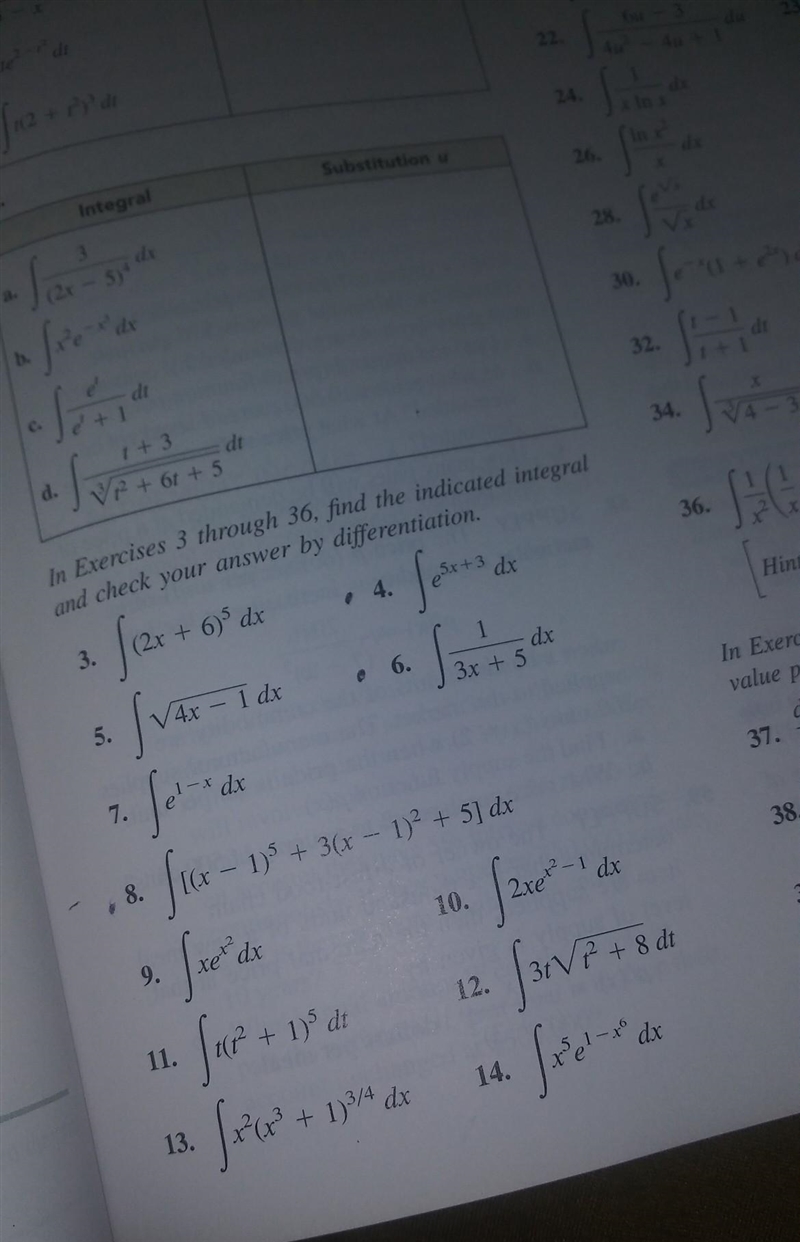 ∫ t(2 + t²)³ dt
Integral Substitution u
a. ∫ 3/(2x − 5)⁴ dx
b. ∫ x²e^(−x³) dx
c. ∫ eᵗ/(eᵗ + 1) dt
d. ∫ (t + 3)/∛(t² + 6t + 5) dt
In Exercises 3 through 36, find the indicated integral
and check your answer by differentiation.
3. ∫ (2x + 6)⁵ dx
4. ∫ e^(5x+3) dx
5. ∫ √(4x − 1) dx
6. ∫ 1/(3x + 5) dx
7. ∫ e^(1−x) dx
8. ∫ [(x − 1)⁵ + 3(x − 1)² + 5] dx
9. ∫ xe^(x²) dx
10. ∫ 2xe^(x²−1) dx
11. ∫ t(t² + 1)⁵ dt
12. ∫ 3t√(t² + 8) dt
13. ∫ x²(x³ + 1)^(3/4) dx
14. ∫ x⁵e^(1−x⁶) dx
22. ∫ − 3/(4u² − 4u + 1) du
24. ∫ 1/(x ln x) dx
26. ∫ (ln x²)/x dx
28. ∫ e^(√x)/√x dx
30. ∫ e^(−x)(1 + e^(2x))
32. ∫ (t − 1)/(t + 1) dt
34. ∫ x/∛(4 − 3
36. ∫ 1/x² (1/x
[Hint
In Exerc
value p
37.
38.